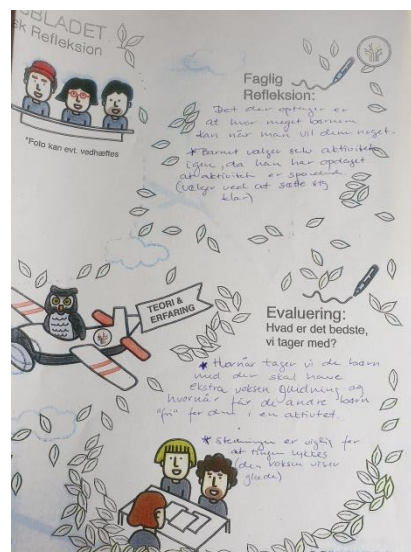 SBLADET
sk Refleksion
*Foto kan evt. vedhæftes
Faglig
Refleksion:
Det der optager er
at hvor meget børnene
kan når man vil dem noget.
* Barnet vælger selv aktivitet
igen, da han har opdaget
at aktivitet er spændende
(vælger ved at sætte sig
klar)
TEORI &
ERFARING
Evaluering:
Hvad er det bedste,
vi tager med?
* Hvornår tager vi de børn
med der skal have
ekstra voksen guidning og
hvornår får de andre børn
"fri" for dem i en aktivtet.
* Stemningen er vigtig for
at tingen lykkes
(den voksen viser
glæde)